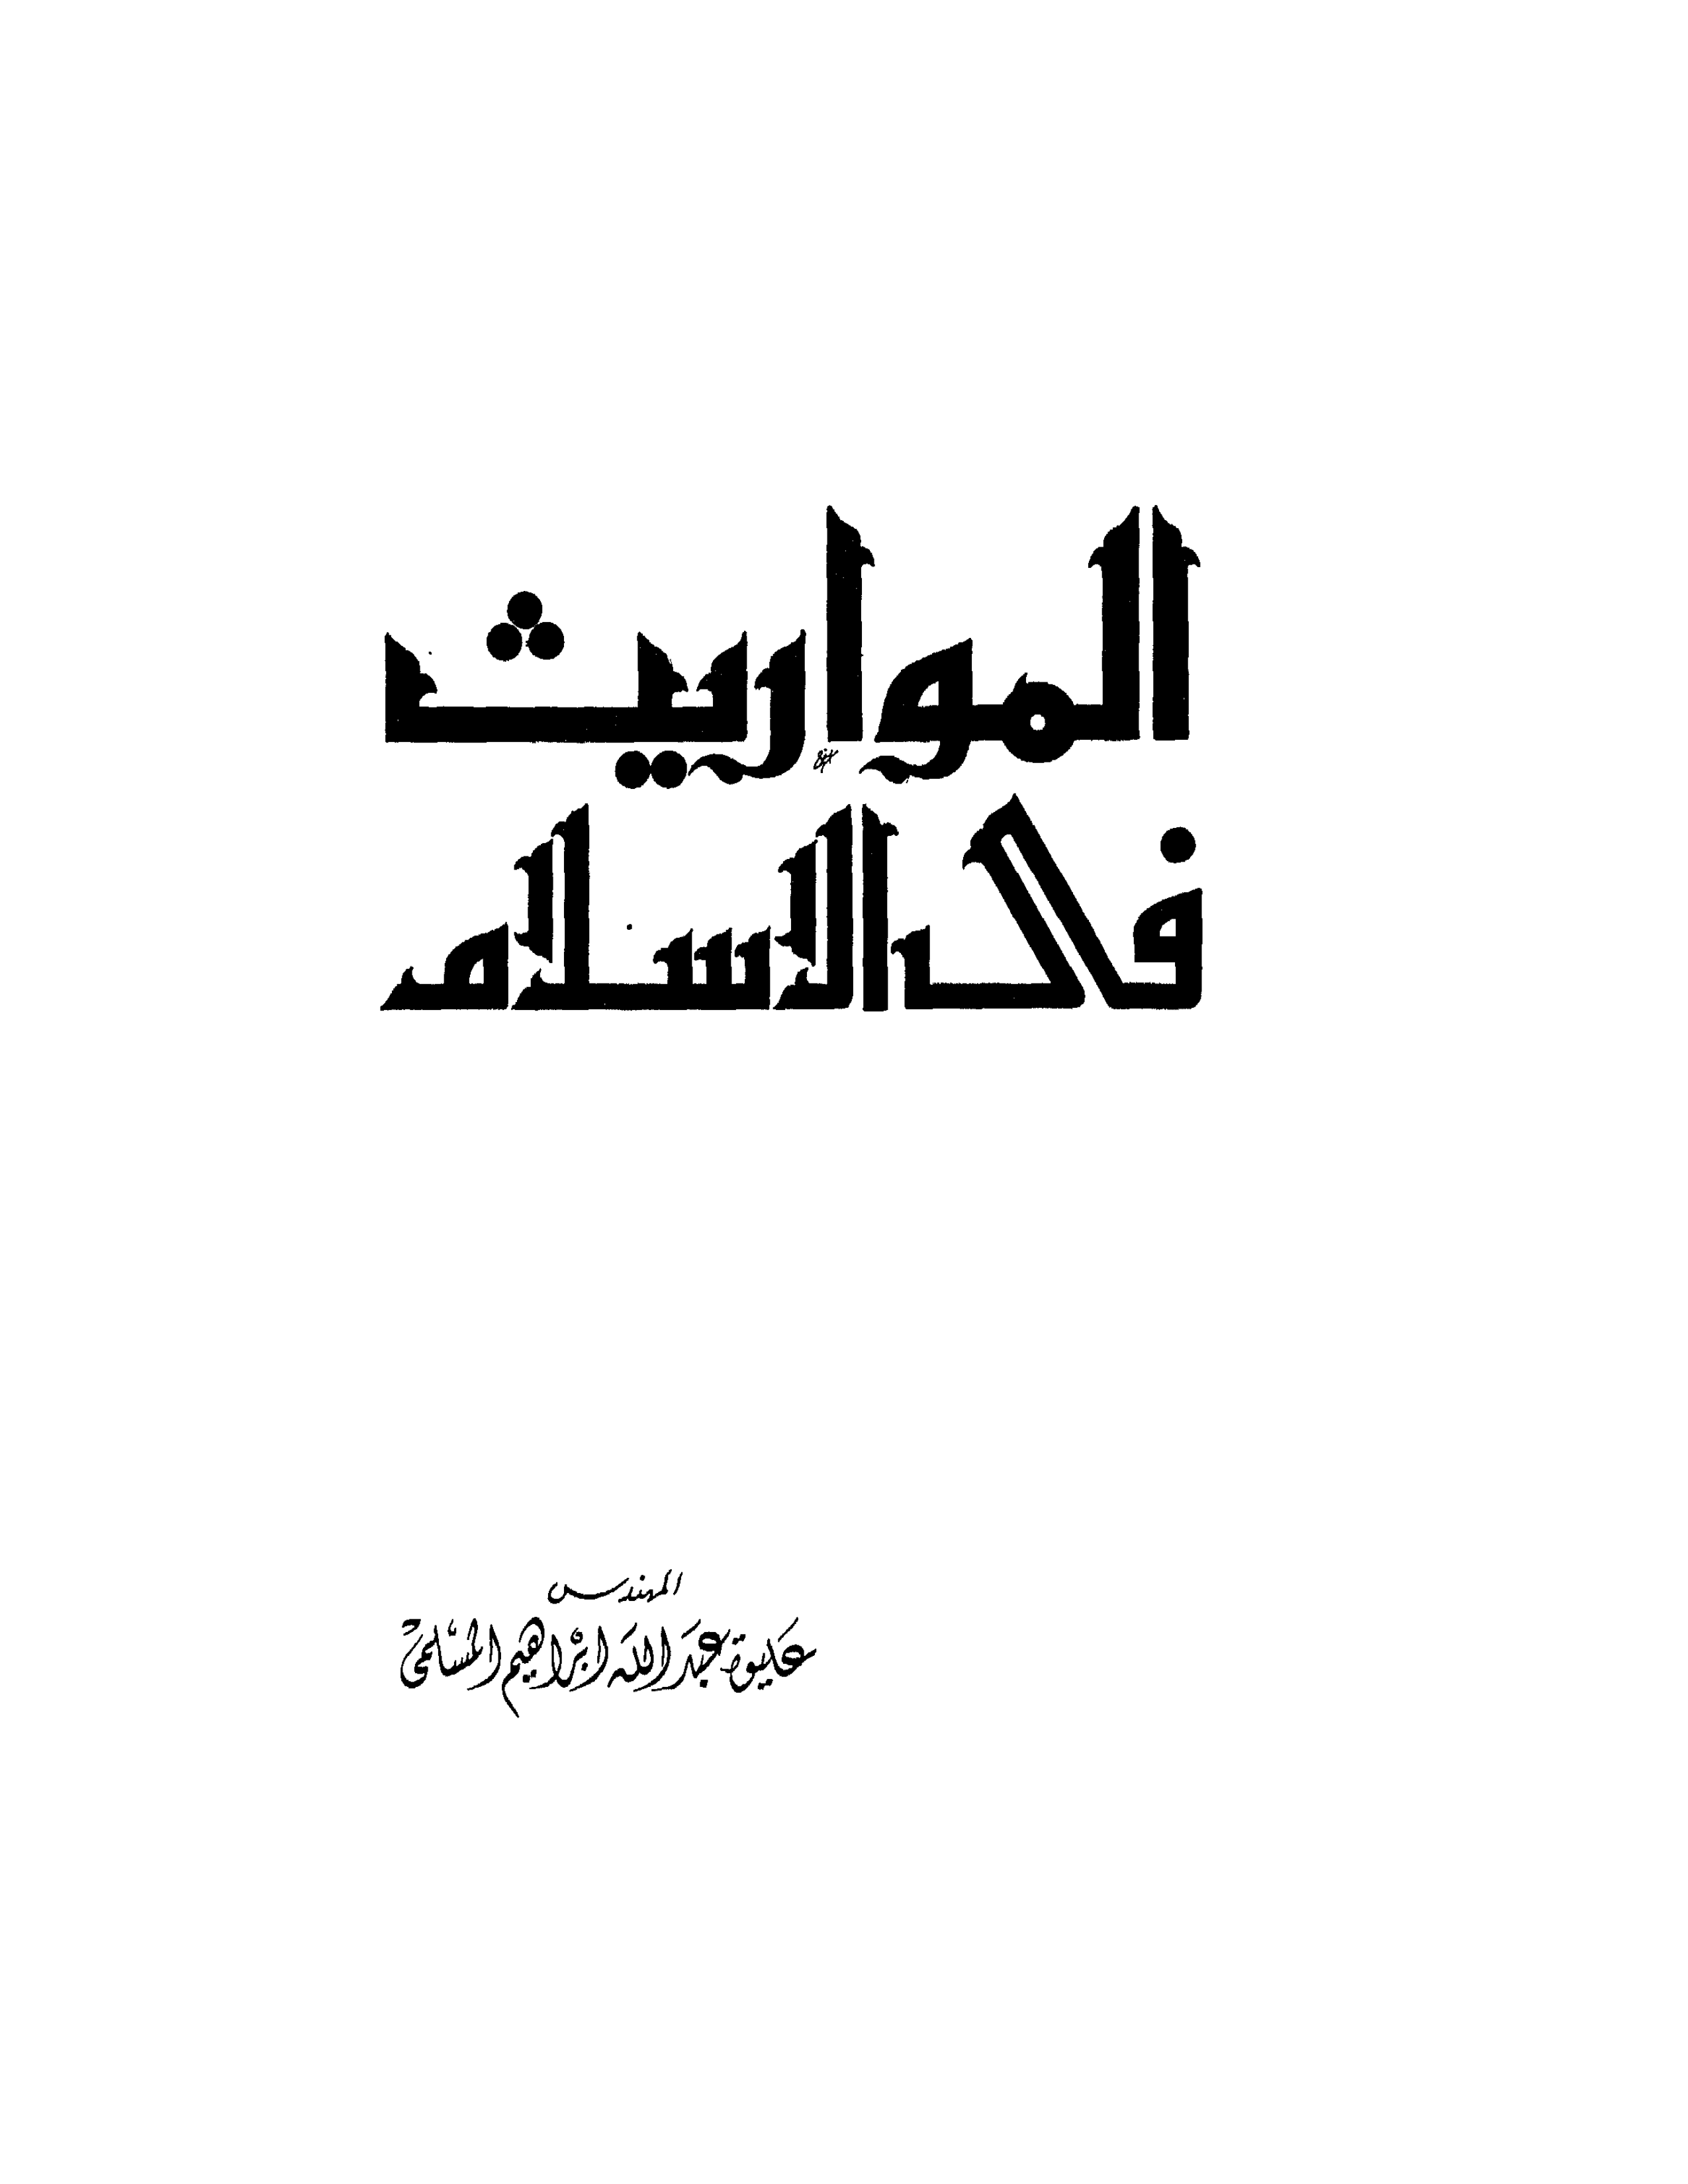 المواريث
في الاسلام
المهندس
عليوة عبد الله ابراهيم السّاعي